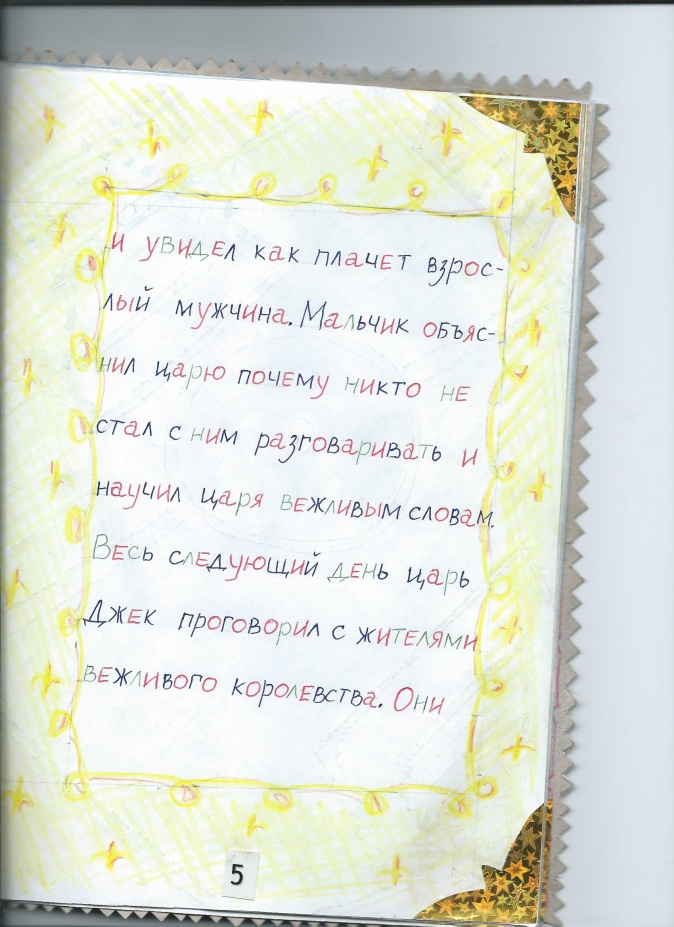 и увидел как плачет взрос-
лый мужчина. Мальчик объяс-
нил царю почему никто не
стал с ним разговаривать и
научил царя вежливым словам.
Весь следующий день царь
Джек проговорил с жителями
вежливого королевства. Они
5